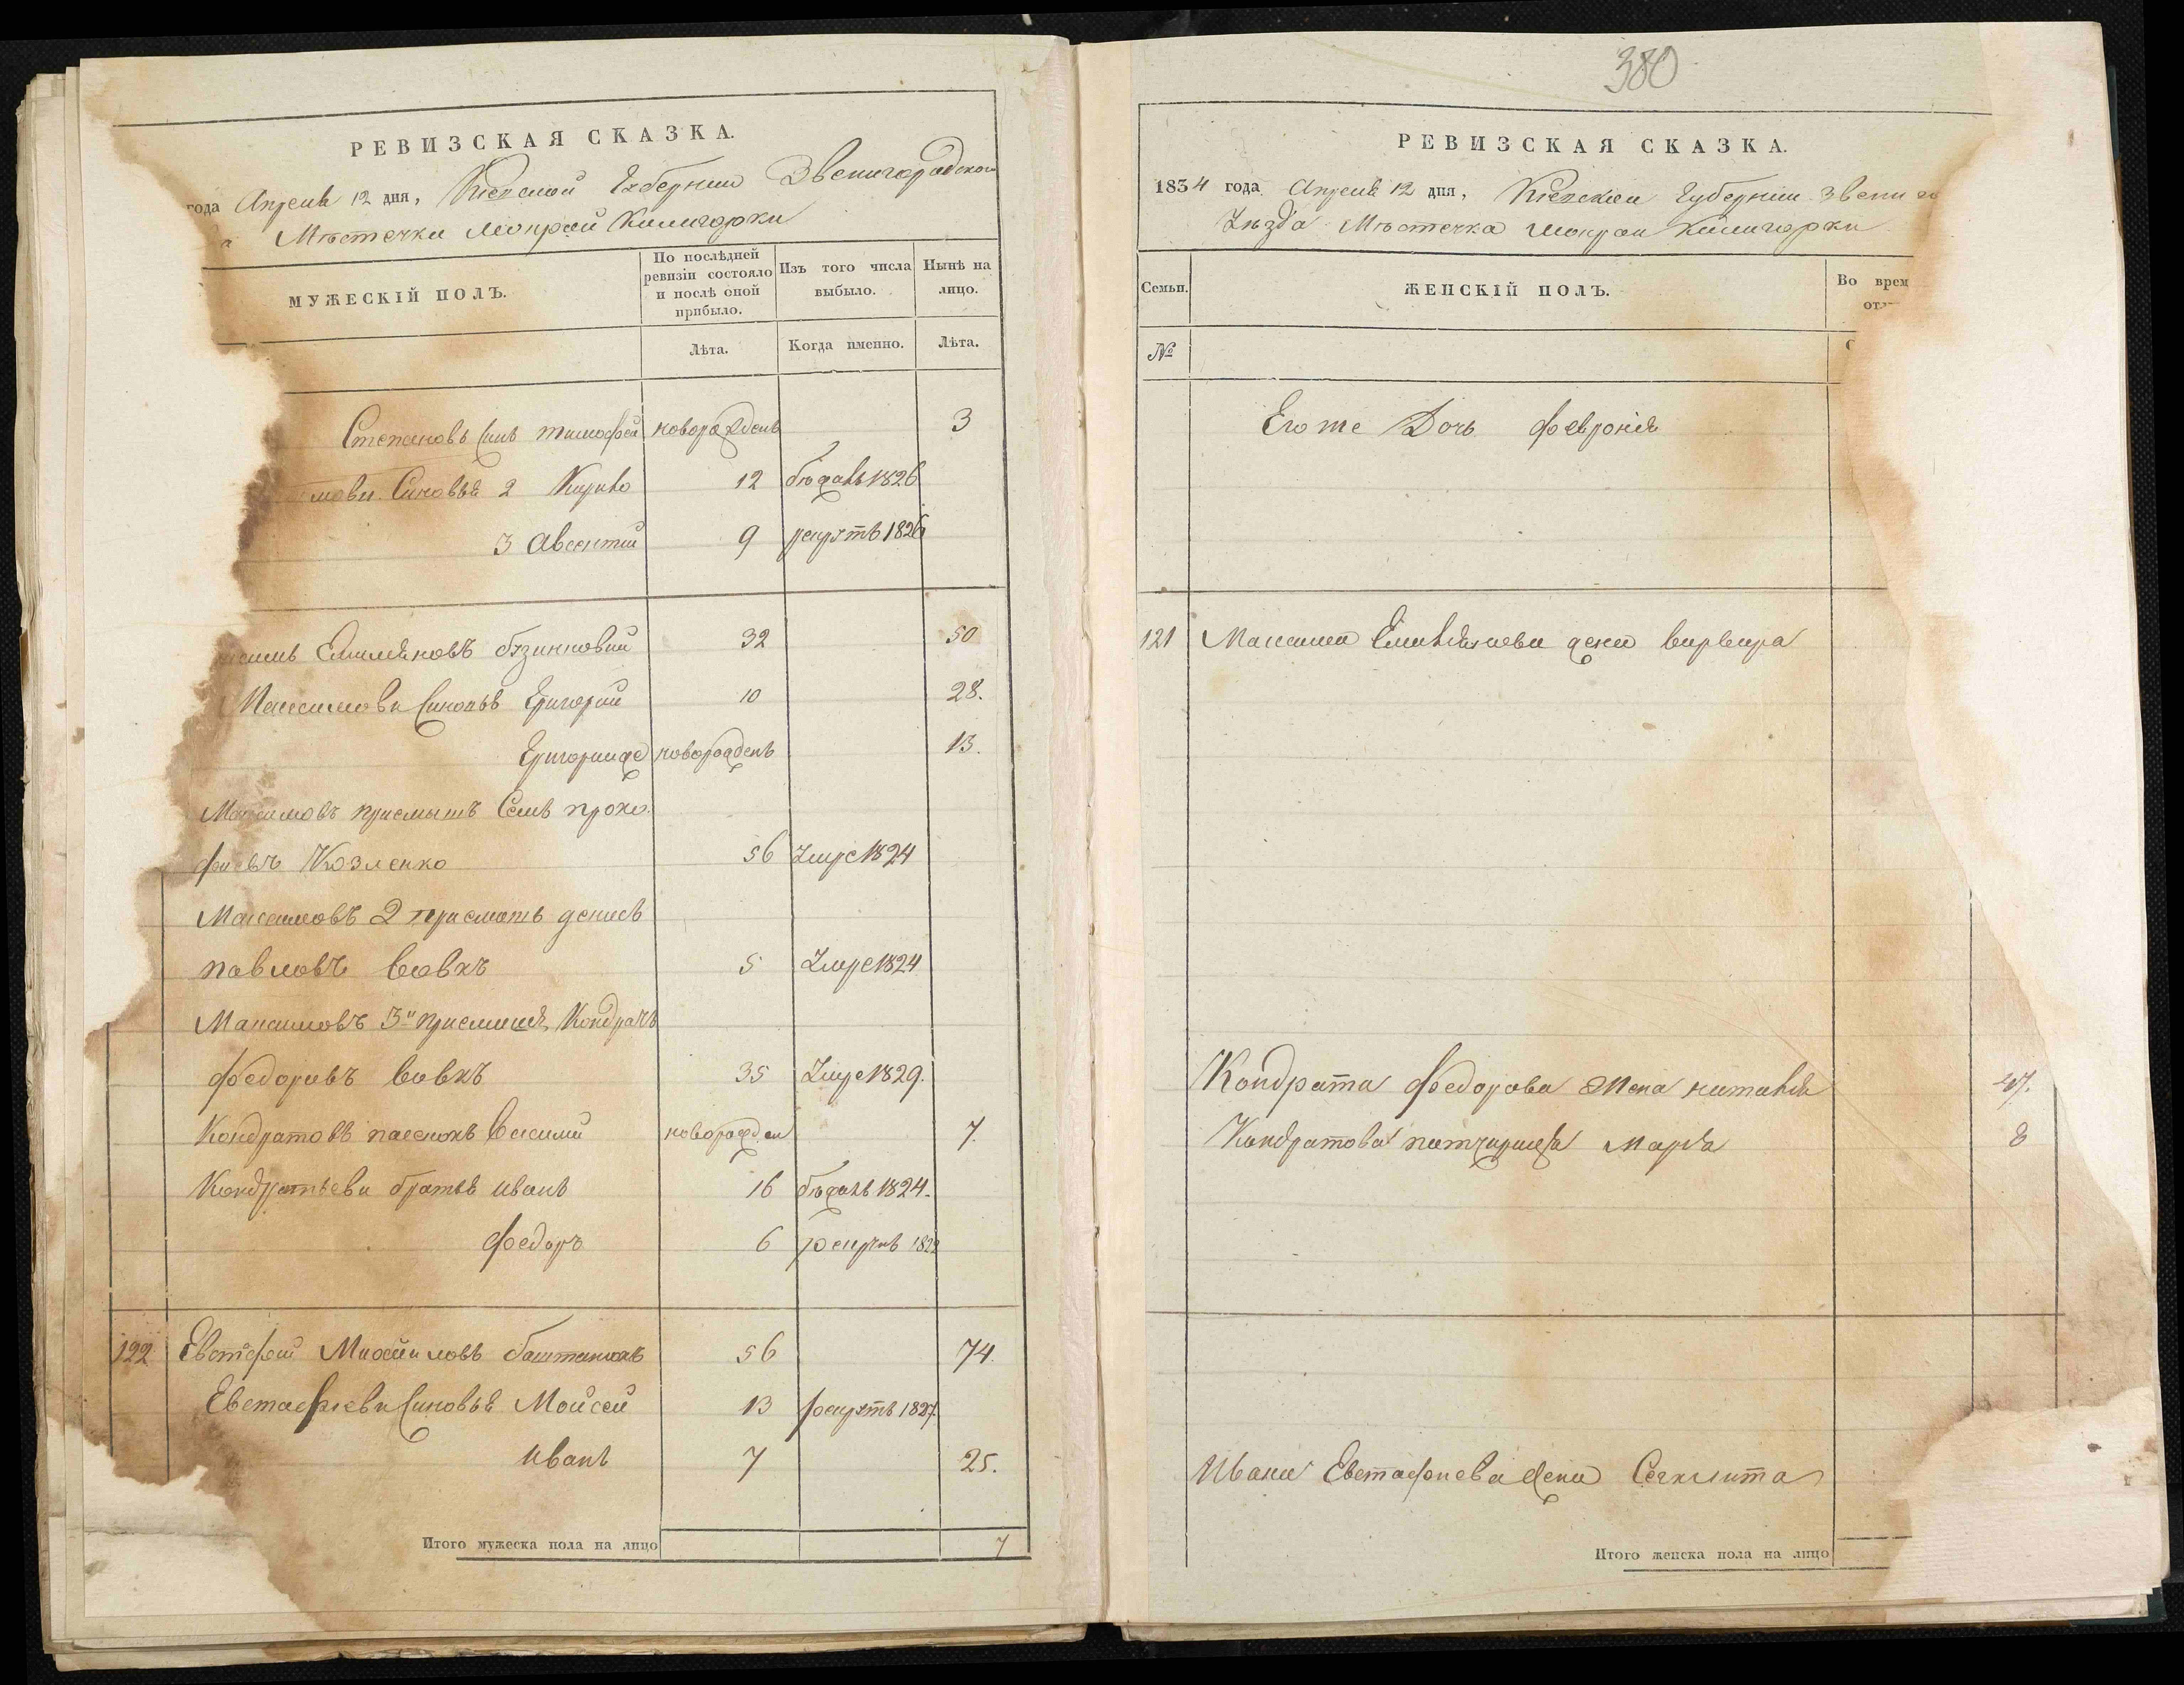 РЕВИЗСКАЯ СКАЗКА.
года Апреля 12 дня, Кіевской Губерніи Звенигородского
а Мѣстечка Мокрой Калигорки
МУЖЕСКІЙ ПОЛЪ.
По послѣдней ревизіи состояло и послѣ оной прибыло.
Изъ того числа выбыло.
Нынѣ на лицо.
Лѣта.
Когда именно.
Лѣта.
Степановъ Синъ тимофей новорожденъ 3
мови Синовья 2 Кирило 12 бѣжалъ 1826
3 Авсентий 9 рекрутъ 1826
Емилияновъ 32 50
Максимови Синовья Григорий 10 28.
Григорий же новорожденъ 13.
Максимовъ приемышъ Семъ проко
фиевъ Козленко 56 Умре 1824
Максимовъ 2 приемышъ денисъ
павловъ вовкъ 5 Умре 1824
Максимовъ 3й приемишъ Кондратъ
Федоровъ вовкъ 35 Умре 1829.
Кондратовъ пасенокъ Василий новорожден 7.
Кондратьеви братья иванъ 16 бѣжалъ 1824.
Федоръ 6 рекрутъ 182
122 Евстафий баштаникъ 56 74.
Евстафиеви Синовья Мойсей 13 рекрутъ 1827.
иванъ 7 25.
Итого мужеска пола на лицо 7
380
РЕВИЗСКАЯ СКАЗКА.
1834 года Апреля 12 дня, Кіевской Губерніи Звениго
Уѣзда Мѣстечка Мокрой Калигорки
Семьи.
ЖЕНСКІЙ ПОЛЪ.
Во врем
отл
№
Его же Дочь Февронія
121 Максима Емилиянова жена варвара
Кондрата Федорова жена наталия 47.
Кондратова патчирица Марья 8
Ивана Евстафиева жена
Итого женска пола на лицо